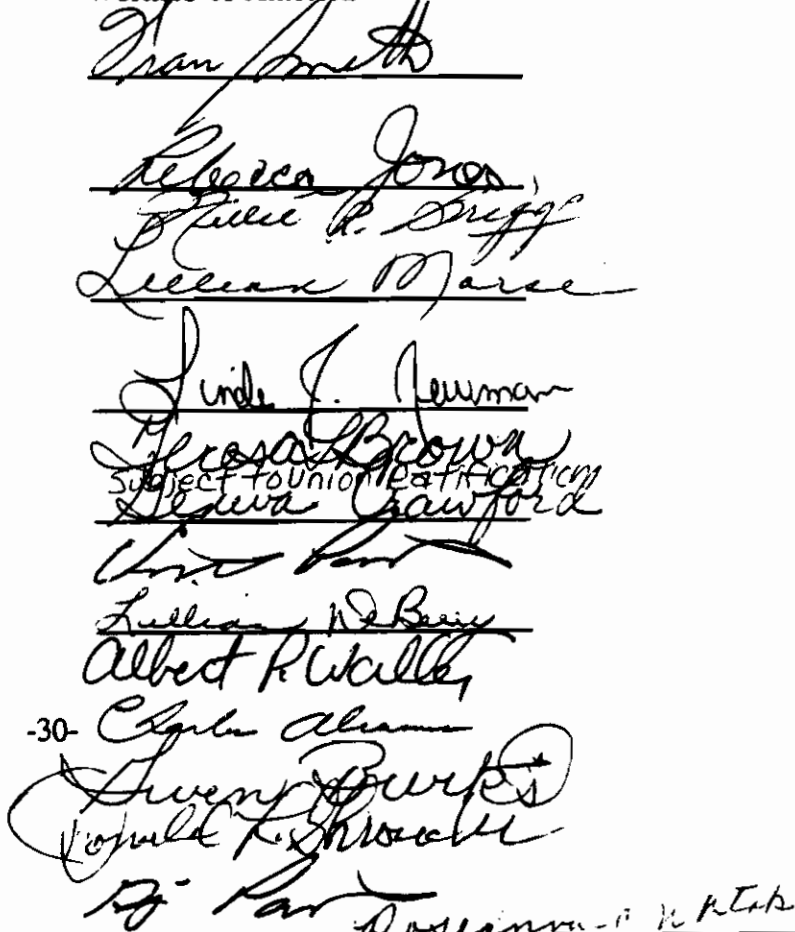 Fran Smith
Rebecca Jones
Millie R. Griggs
Lillian Morse
Linda J. Newman
Teresa L Brown
Subject to Union Ratification
Crawford
Lillian DeBerry
Albert R. Waller
Charles Abrams
-30-
Gwen Burks
Ronald R.